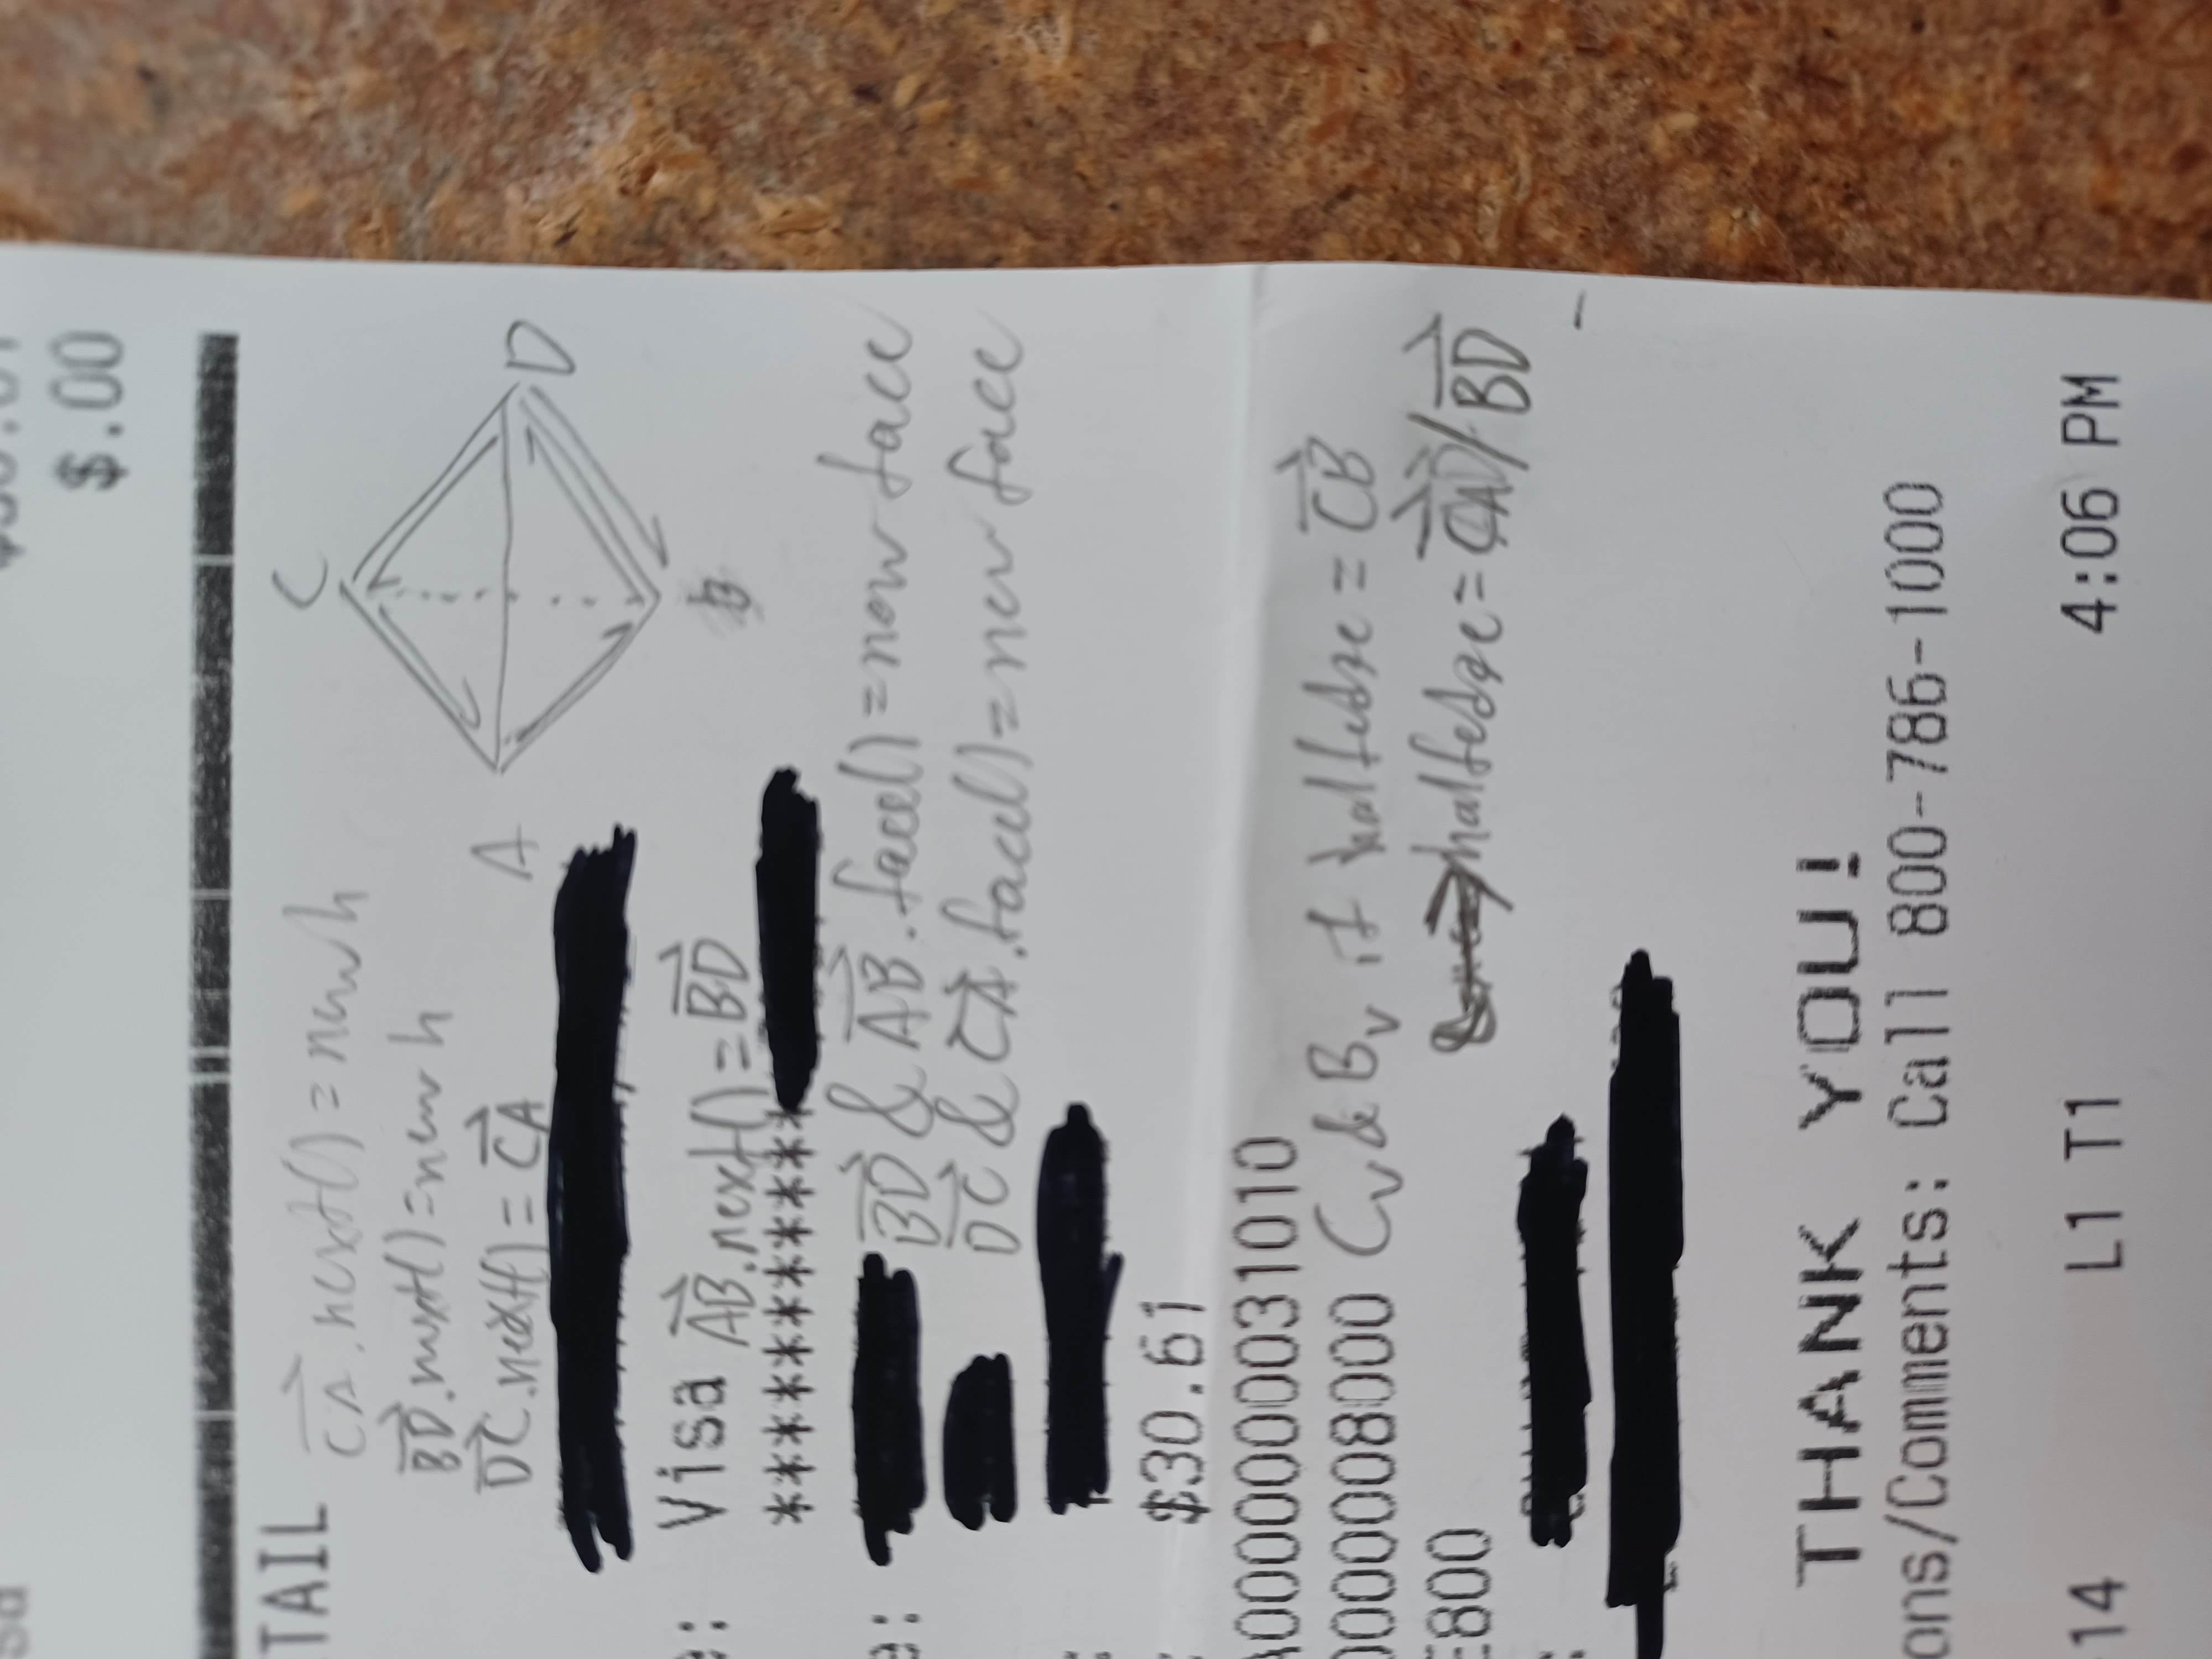 $.00
TAIL
CA.next() = new h
BD.next() = new h
DC.next() = CA
C
A
D
B
e: Visa AB.next() = BD
***********
e: BD & AB.face() = new face
DC & CA.face() = new face
:
: $30.61
A0000000031010
0000008000 Cv & Bv if halfedge = CB
E800 halfedge = CA/BD
:
THANK YOU!
ons/Comments: Call 800-786-1000
14 L1 T1 4:06 PM